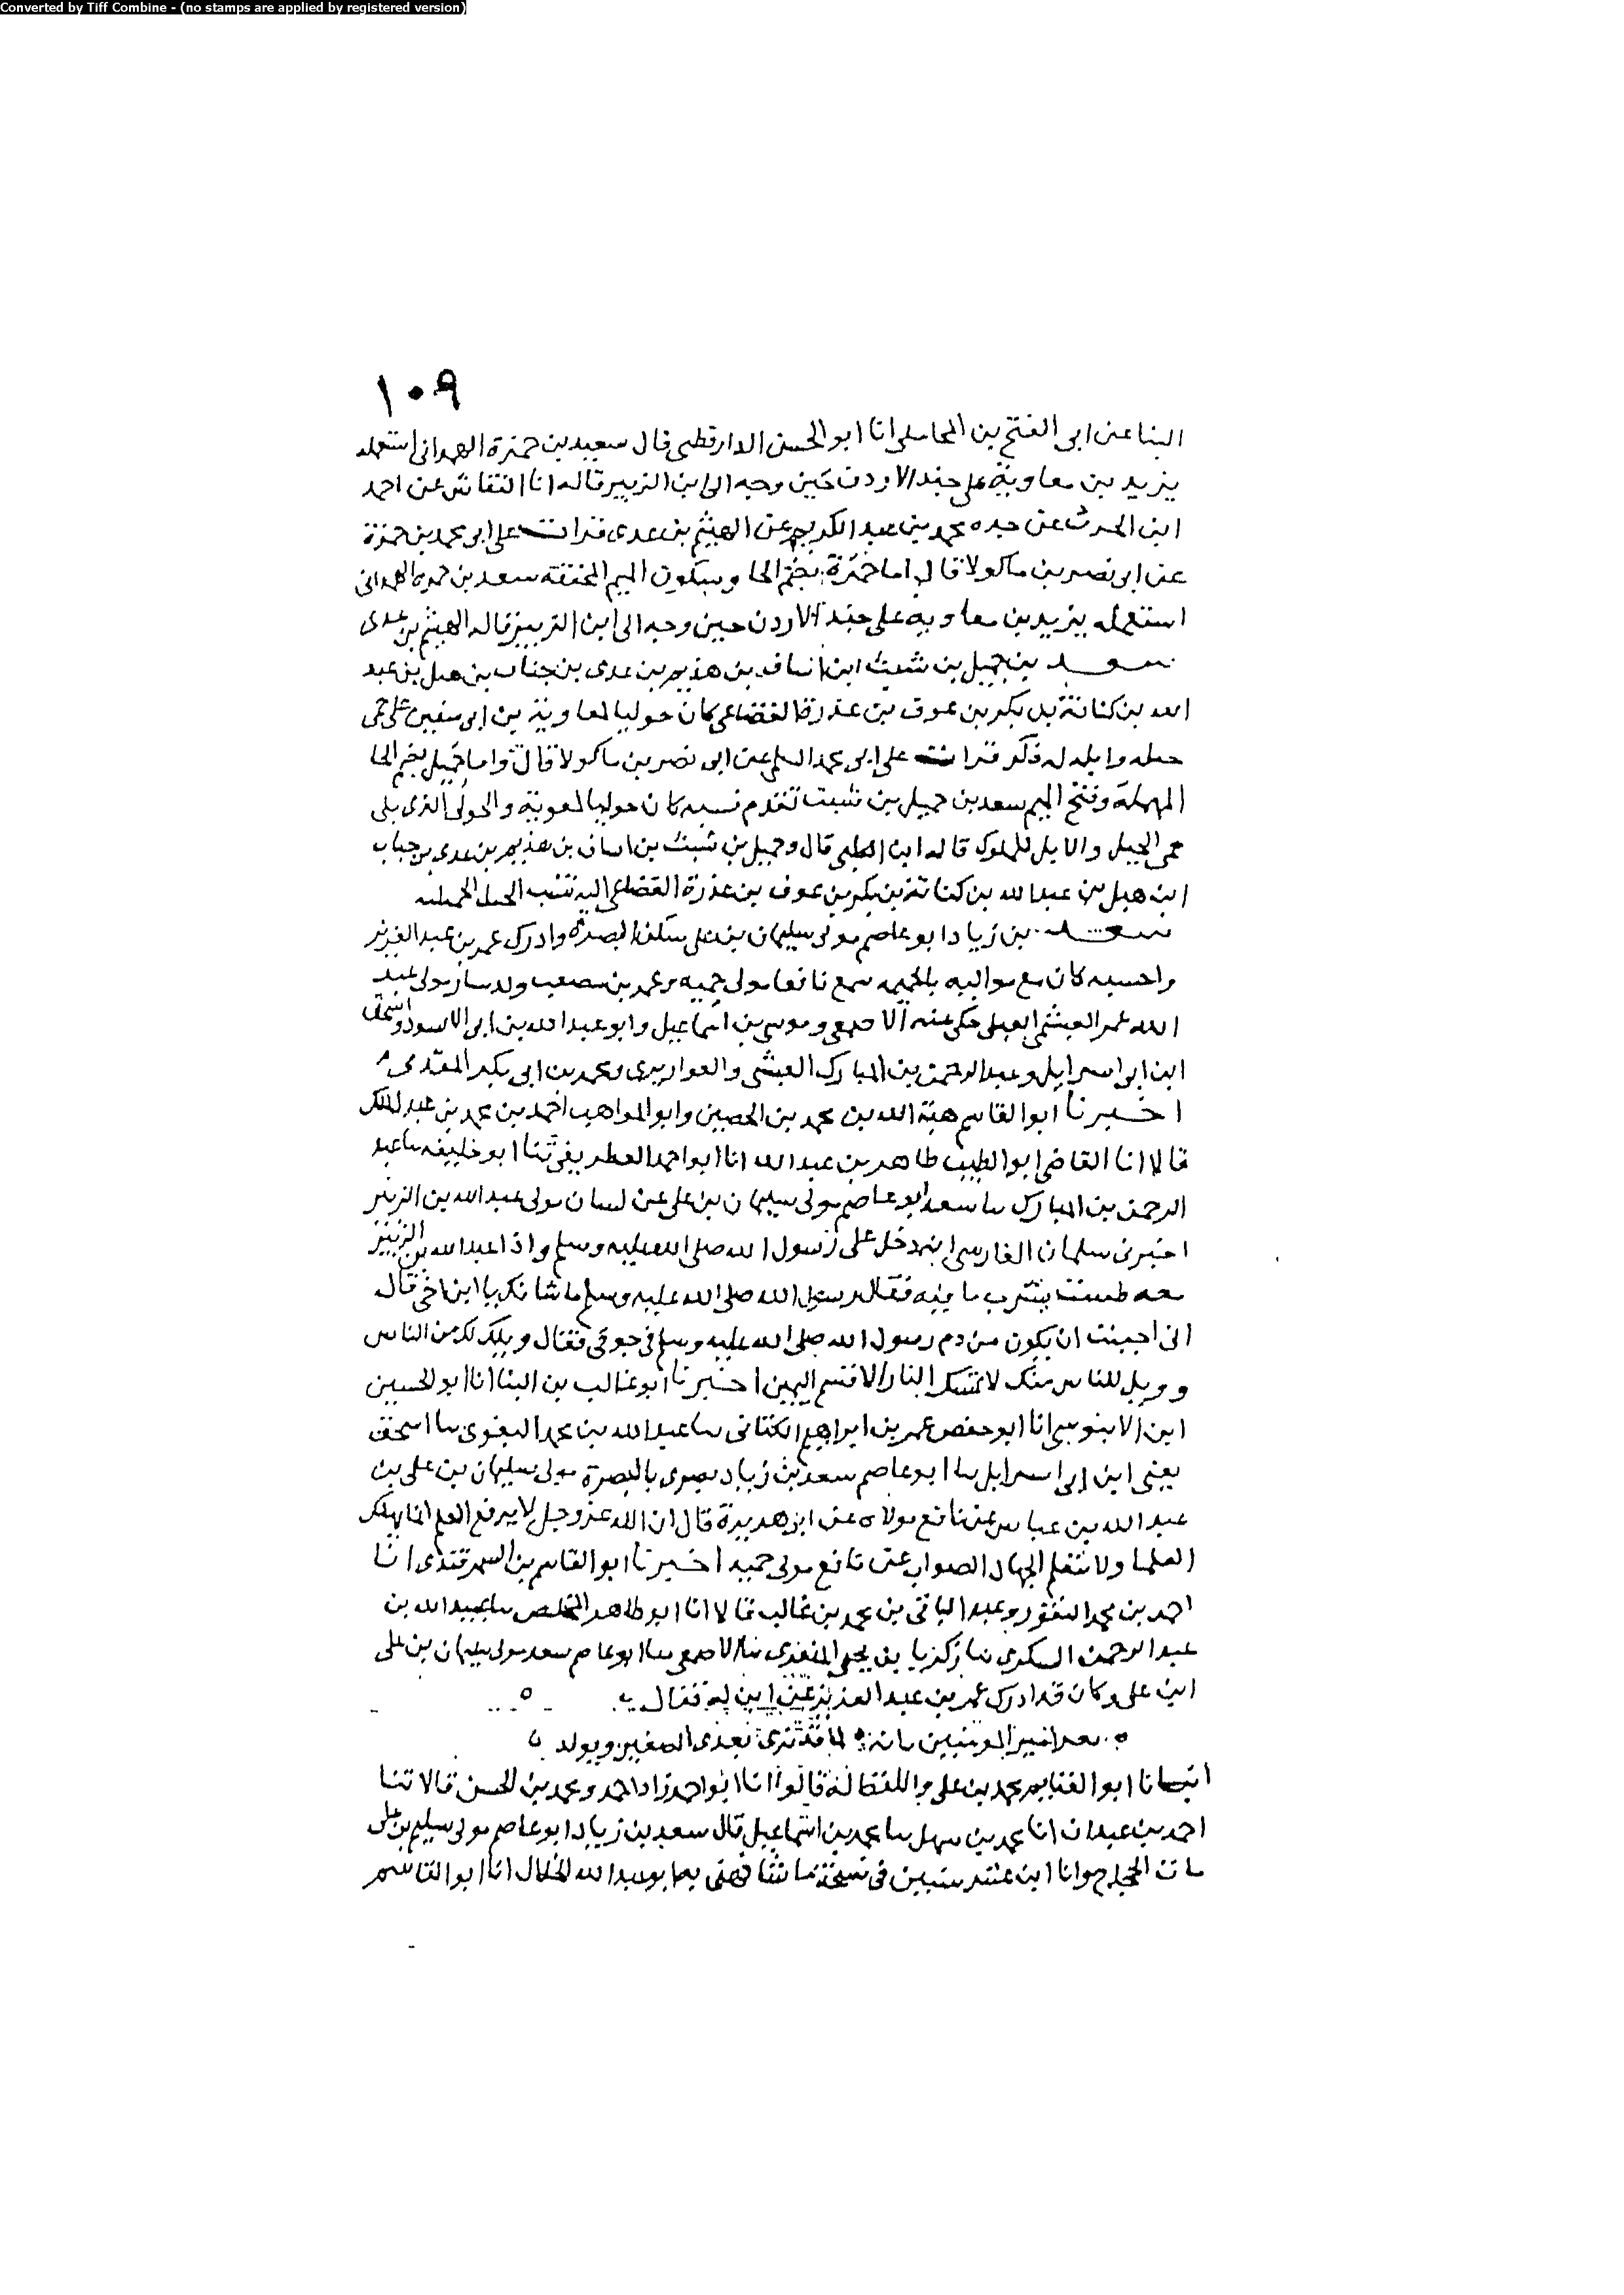 Converted by Tiff Combine - (no stamps are applied by registered version)
١٠٩
البنا عن ابى الفتح بن المحاملى انا ابو الحسن الدارقطى قال سعيد بن حمزة الهمدانى استعمله
يزيد بن معاوية على جند الاردن حين وجه الى ابن الزبير قاله انا النقاش عن احمد
ابن الحرث عن جده محمد بن عبد الكريم عن الهيثم بن عدى قرات على ابى محمد بن حمزة
عن ابى نصر بن ماكولا قال اما حمرة بضم الحا وسكون الميم المخففة سعد بن حمره الهمدانى
استعمله يزيد بن معاويه على جند الاردن حين وجه الى ابن الزبير قاله الهيثم بن عدى
سعد بن حميل بن شبث ابن اساف بن هذيم بن عدى بن جناب بن هبل بن عبد
الله بن كنانة بن بكر بن عوف بن عذرة القضاعى كان حوليا لمعاوية بن ابى سفين على حمى
حمله وابله له ذكر قرات على ابى محمد السلمى عن ابى نصر بن ماكولا قال واما حميل بضم الحا
المهملة وفتح الميم سعد بن حميل بن شبث تقدم نسبه كان حوليا لمعوية والحولى الذى يلى
حمى الخيل والابل للملوك قاله ابن الكلبى قال وحميل بن شبث بن اساف بن هذيم بن عدى بن جناب
ابن هبل بن عبد الله بن كنانة بن بكر بن عوف بن عذرة القضاعى اليه تنسب الخيل الحميليه
سعد بن زياد ابو عاصم مولى سليمان بن على سكن البصرة وادرك عمر بن عبد العزيز
واحسبه كان مع مواليه بالحميمه سمع نافعا مولى حمنه وعمر بن مصعب و مولى عبد
الله عمر العبشمى حكى عنه الاصمعى وموسى بن اسماعيل وابو عبد الله بن ابى الاسود واسحق
ابن ابى اسرايل وعبد الرحمن بن المبارك العيشى والقواريرى ومحمد بن ابى بكر المقدمى
اخبرنا ابو القاسم هبة الله بن محمد بن الحصين وابو المواهب احمد بن محمد بن عبد الملك
قالا انا القاضى ابو الطيب طاهر بن عبد الله انا ابو احمد الغطريفى ثنا ابو خليفه نا عبد
الرحمن بن المبارك نا سعد ابو عاصم مولى سليمان بن على عن كيسان مولى عبد الله بن الزبير
اخبرنى سلمان الفارسى انه دخل على رسول الله صلى الله عليه وسلم واذا عبد الله بن الزبير
معه طست يشرب ما فيه فقال رسول الله صلى الله عليه وسلم ما شانك يا ابن اخى قال
انى احببت ان يكون من دم رسول الله صلى الله عليه وسلم فى جوفى فقال ويلك لك من الناس
وويل للناس منك لا تمسك النار الا قسم اليمين اخبرنا ابو غالب بن البنا انا ابو الحسين
ابن الابنوسى انا ابو حفص عمر بن ابراهيم الكتانى نا عبد الله بن محمد البغوى نا اسحق
يعنى ابن ابى اسرايل نا ابو عاصم سعد بن زياد بصرى بالبصرة مولى سليمان بن على بن
عبد الله بن عباس عن نافع مولاه عن ابى هريرة قال ان الله عز وجل لا يرفع العلم انما يهلك
العلما ولا تتعلم الجهال الصواب عن نافع مولى حميد اخبرنا ابو القاسم بن السمرقندى انا
احمد بن محمد النقور وعبد الباقى بن محمد بن غالب قالا انا ابو طاهر المخلص نا عبيد الله بن
عبد الرحمن السكرى نا زكريا بن يحيى المنقرى نا الاصمعى نا ابو عاصم سعد مولى سليمان بن على
ابن على وكان قد ادرك عمر بن عبد العزيز عن ابن له فقال
امير المومنين بانه لما قد ترى يغذى الصغير ويولد
انبانا ابو الغنايم محمد بن على واللفظ له قالوا انا ابو احمد زاد احمد ومحمد بن الحسن قالا ثنا
احمد بن عبدان انا محمد بن سهل نا محمد بن اسماعيل قال سعد بن زياد ابو عاصم مولى سليم بن على
فى نسخة ما شافهنى به ابو عبد الله الخلال انا ابو القاسم